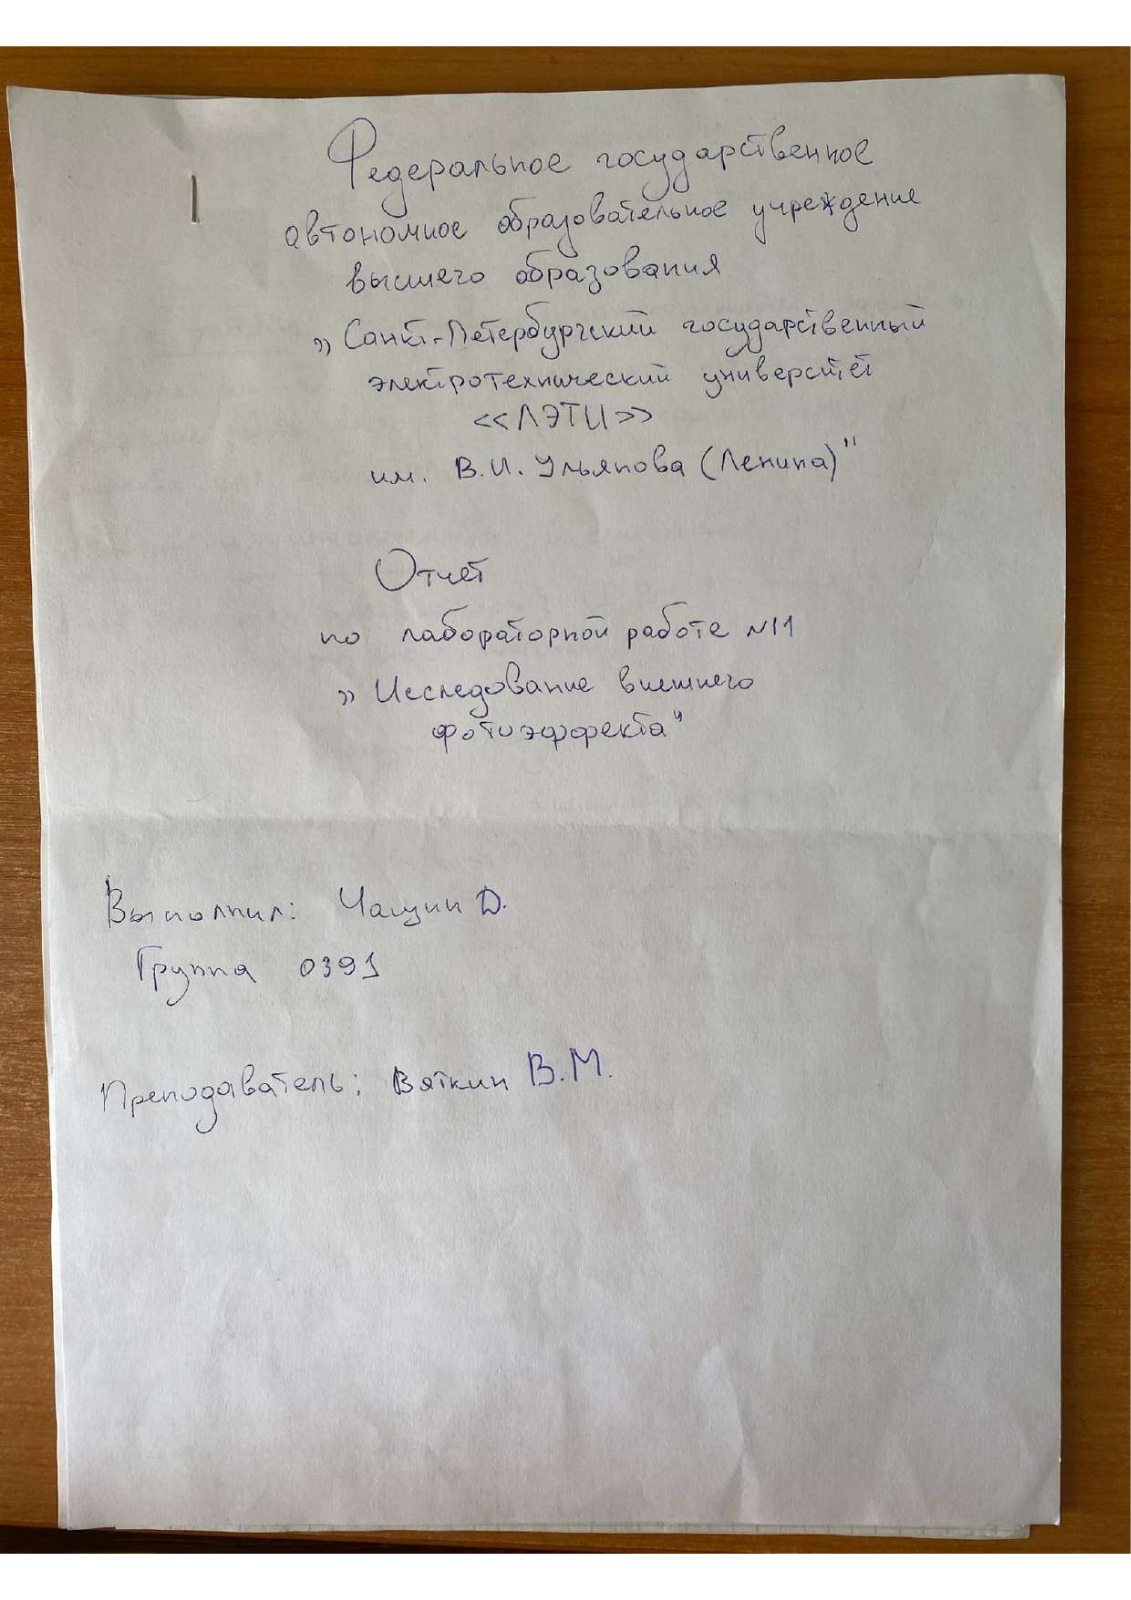 Федеральное государственное
автономное образовательное учреждение
высшего образования
„Санкт-Петербургский государственный
электротехнический университет
<<ЛЭТИ>>
им. В.И. Ульянова (Ленина)"
Отчет
по лабораторной работе №11
„Исследование внешнего
фотоэффекта"
Выполнил: Чащин Д.
Группа 0391
Преподаватель: Вяткин В.М.